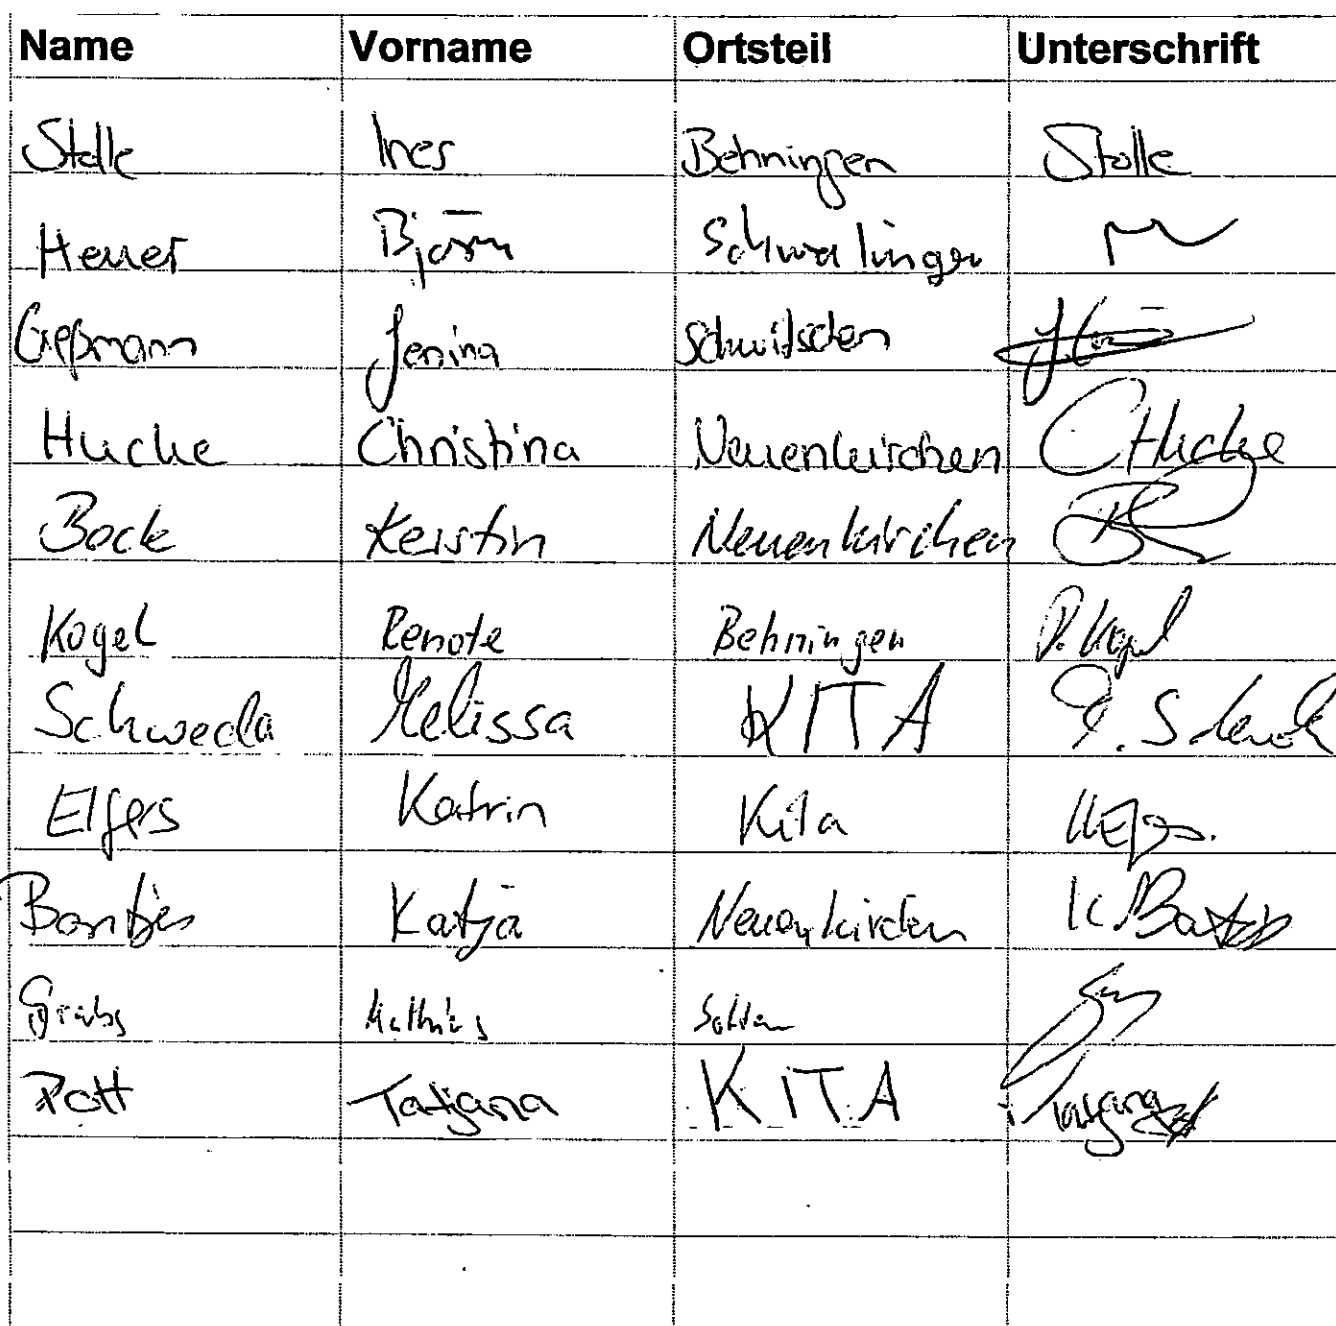 Name Vorname Ortsteil Unterschrift
Stolle Ines Behningen Stolle
Heuer Björn Schwalingen
Geßmann Jenina Schwitschen
Hucke Christina Neuenkirchen CHucke
Bock Kerstin Neuenkirchen
Kogel Renate Behningen R. Kogel
Schweda Melissa KITA
Elfers Katrin Kita
Bantjes Katja Neuenkirchen
Grabs Mathias Soltau
Pott Tatjana KITA